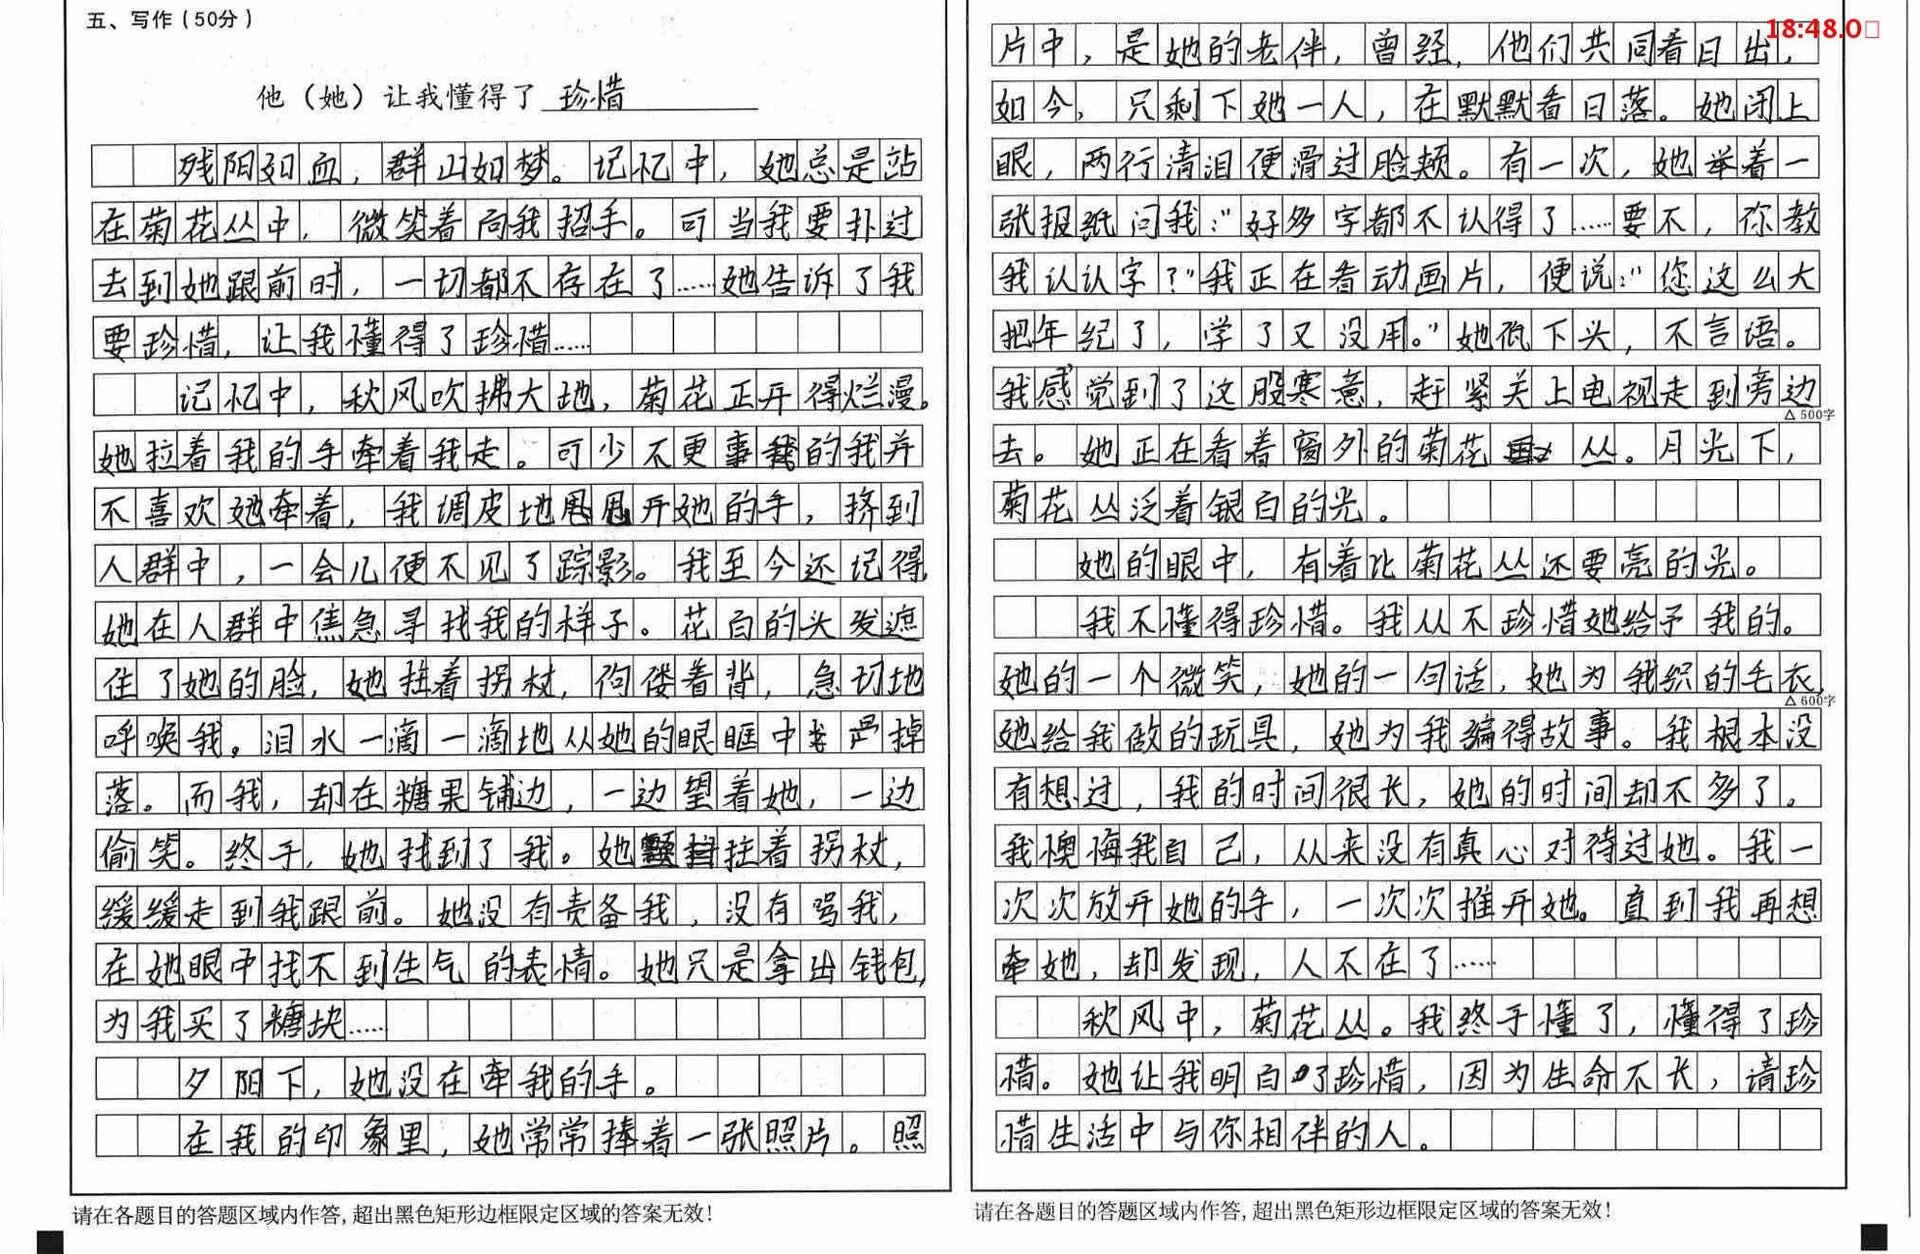 五、写作（50分）
他（她）让我懂得了 珍惜
残阳如血，群山如梦。记忆中，她总是站
在菊花丛中，微笑着向我招手。可当我要扑过
去到她跟前时，一切都不存在了……她告诉了我
要珍惜，让我懂得了珍惜……
记忆中，秋风吹拂大地，菊花正开得烂漫。
她拉着我的手牵着我走。可少不更事的我并
不喜欢她牵着，我调皮地甩开她的手，挤到
人群中，一会儿便不见了踪影。我至今还记得，
她在人群中焦急寻找我的样子。花白的头发遮
住了她的脸，她拄着拐杖，佝偻着背，急切地
呼唤我。泪水一滴一滴地从她的眼眶中掉
落。而我，却在糖果铺边，一边望着她，一边
偷笑。终于，她找到了我。她拄着拐杖，
缓缓走到我跟前。她没有责备我，没有骂我，
在她眼中找不到生气的表情。她只是拿出钱包，
为我买了糖块……
夕阳下，她没在牵我的手。
在我的印象里，她常常捧着一张照片。照
片中，是她的老伴，曾经，他们共同看日出，
如今，只剩下她一人，在默默看日落。她闭上
眼，两行清泪便滑过脸颊。有一次，她举着一
张报纸问我：“好多字都不认得了……要不，你教
我认认字？”我正在看动画片，便说：“您这么大
把年纪了，学了又没用。”她低下头，不言语。
我感觉到了这股寒意，赶紧关上电视走到旁边
△500字
去。她正在看着窗外的菊花丛。月光下，
菊花丛泛着银白的光。
她的眼中，有着比菊花丛还要亮的光。
我不懂得珍惜。我从不珍惜她给予我的。
她的一个微笑，她的一句话，她为我织的毛衣，
△600字
她给我做的玩具，她为我编得故事。我根本没
有想过，我的时间很长，她的时间却不多了。
我懊悔我自己，从来没有真心对待过她。我一
次次放开她的手，一次次推开她。直到我再想
牵她，却发现，人不在了……
秋风中，菊花丛。我终于懂了，懂得了珍
惜。她让我明白了珍惜，因为生命不长，请珍
惜生活中与你相伴的人。
请在各题目的答题区域内作答，超出黑色矩形边框限定区域的答案无效！
请在各题目的答题区域内作答，超出黑色矩形边框限定区域的答案无效！
18:48.0